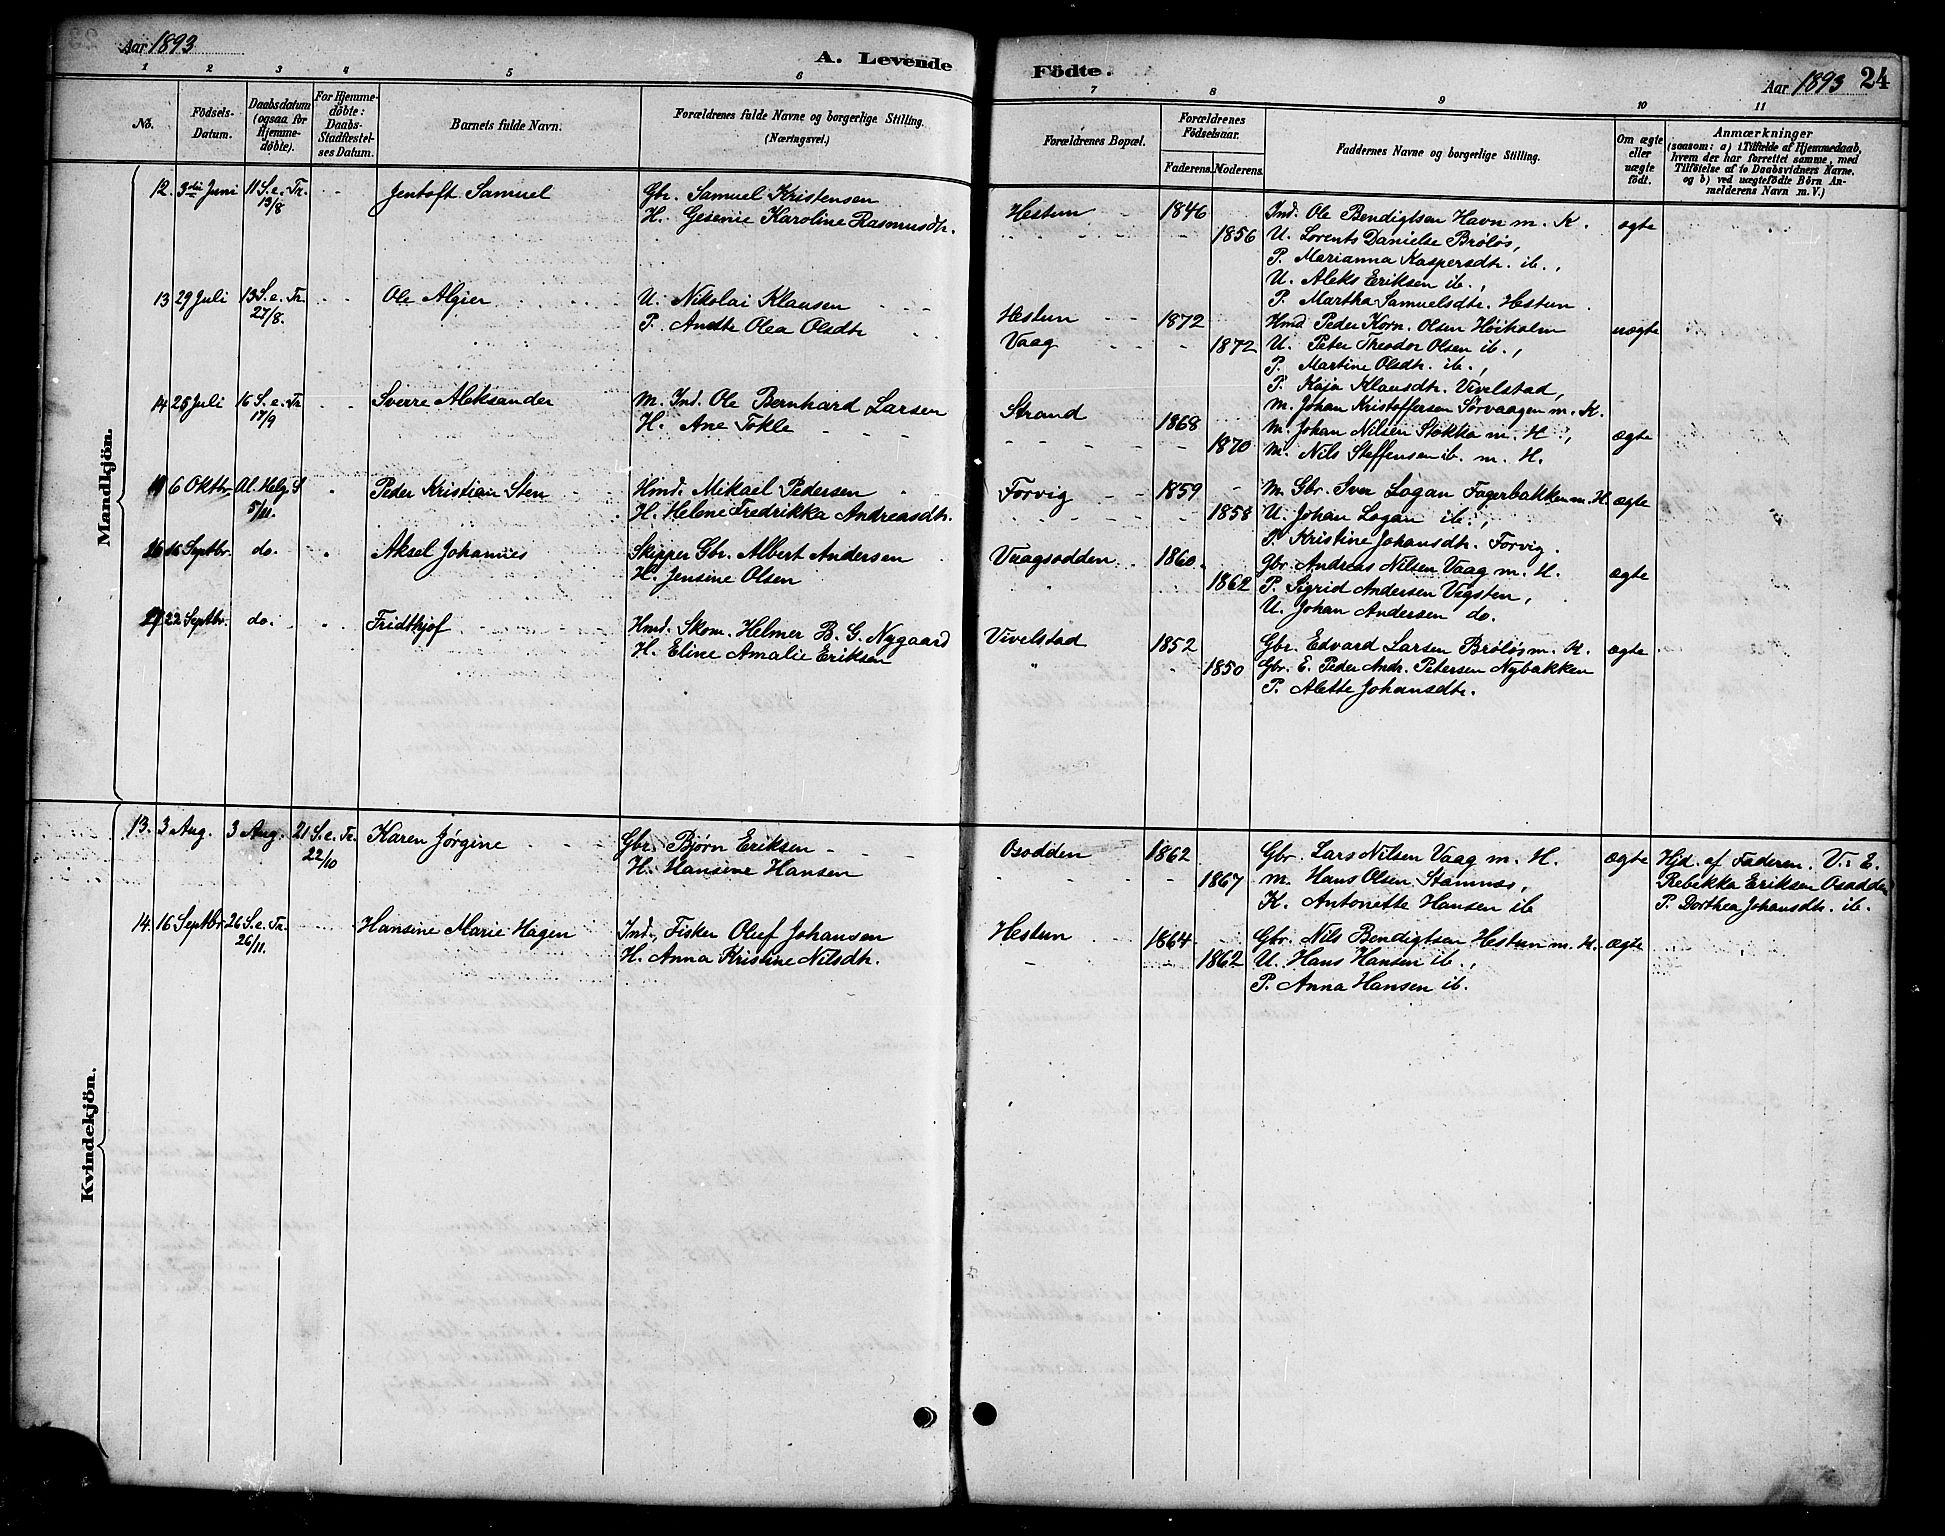 Aar 1893
A. Levende
Födte.
Aar 1893
24
1 2 3 4 5 6 7 8 9 10 11
No.
Födsels-Datum.
Daabsdatum (ogsaa for Hjemme-døbte).
For Hjemme-døbte: Daabs-Stadfæstel-ses Datum.
Barnets fulde Navn.
Forældrenes fulde Navne og borgerlige Stilling.
(Næringsvei.)
Forældrenes Bopæl.
Forældrenes Födselsaar.
Faderens. Moderens.
Faddernes Navne og borgerlige Stilling.
Om ægte eller uægte født.
Anmærkninger
(saasom: a) i Tilfælde af Hjemmedaab,
hvem der har forrettet samme, med
Tilföielse af to Daabsvidners Navne,
og b) ved uægtefödte Börn An-
melderens Navn m. V.)
Mandkjön.
12. 3die Juni 11 S. e. Tr. 13/8 Jentoft Samuel
Gbr. Samuel Kristensen
H. Gesenie Karoline Rasmusdtr.
Hestun 1846
1856
Ind. Ole Bendigtsen Havn m. K.
U. Lorents Danielse Brøløs,
P. Marianna Kaspersdtr. ib.,
U. Aleks Eriksen ib.,
P. Martha Samuelsdtr. Hestun.
ægte
13 29 Juli 13 S. e. Tr. 27/8. Ole Algier
U. Nikolai Klausen
P. Andte Olea Olsdtr
Hestun 1872
Vaag 1872
Hmd Peder Korn. Olsen Høiholm
U. Peter Theodor Olsen ib.,
P. Martine Olsdtr. ib.,
P. Kaja Klausdtr. Vivelstad,
uægte
14 28 Juli 16 S. e. Tr 17/9 Sverre Aleksander
M. Ind. Ole Bernhard Larsen
H. Ane Tokle
Strand 1868
1870
M. Johan Kristoffersen Sørvaagen m. K.
M. Johan Nilsen Stokka m. H.,
M. Nils Steffensen ib. m. H.
ægte
6 Oktbr. Al. Helg. S 5/11. Peder Kristian Sten
Hmd. Mikael Pedersen
H. Helene Fredrikka Andreasdtr.
Forvig 1859
1858
M. Gbr. Iver Logan Fagerbakken m. H
U. Johan Logan ib.,
P. Kristine Johansdtr. Forvig.
ægte
26 16 Septbr. do. Aksel Johannes
Skipper Gbr. Albert Andersen
H. Jensine Olsen
Vaagsodden 1860.
1862
Gbr. Andreas Nilsen Vaag m. H.
P. Sigrid Andersen Vegsten,
U. Johan Andersen do.
ægte
27 22 Septbr. do. Fridthjof
Hmd. Skom. Helmer B. G. Nygaard
H. Eline Amalie Eriksen
Vivelstad 1852
1850
Gbr. Edvard Larsen Brøløs m. H.
Gbr. E. Peder Andr. Petersen Nybakken
P. Alette Johansdtr.
ægte
Kvindekjön.
13. 3 Aug. 3 Aug. 21 S. e. Tr. 22/10 Karen Jørgine
Gbr. Bjørn Eriksen
H. Hansine Hansen
Osodden 1862
1867
Gbr. Lars Nilsen Vaag m. H.
M. Hans Olsen Stamnes,
K. Antonette Hansen ib
ægte
Hjd. af Faderen. V. E.
Rebekka Eriksen Osodden
P. Dorthea Johansdtr. ib.
14. 16 Septbr 26 S. e. Tr. 26/11. Hansine Marie Hagen
Ind., Fisker Oluf Johansen
H. Anna Kristine Nilsdtr.
Hestun 1864
1862
Gbr. Nils Bendigtsen Hestun m. H.
U. Hans Hansen ib.,
P. Anna Hansen ib.
ægte